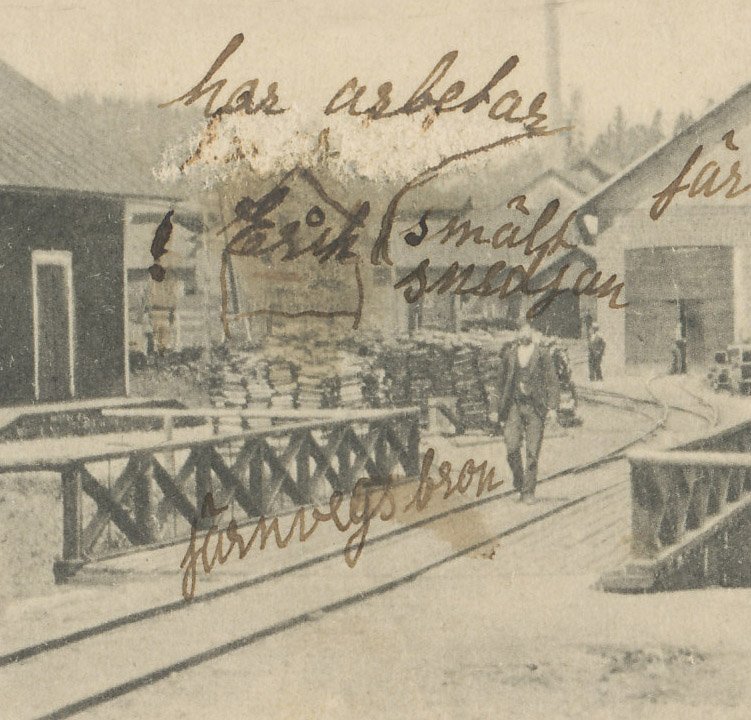 har arbetar
jär
! Erik smält
smedjan
järnvegsbron